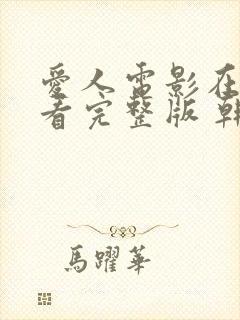 愛人電影在
看完整版 韓
馬躍華